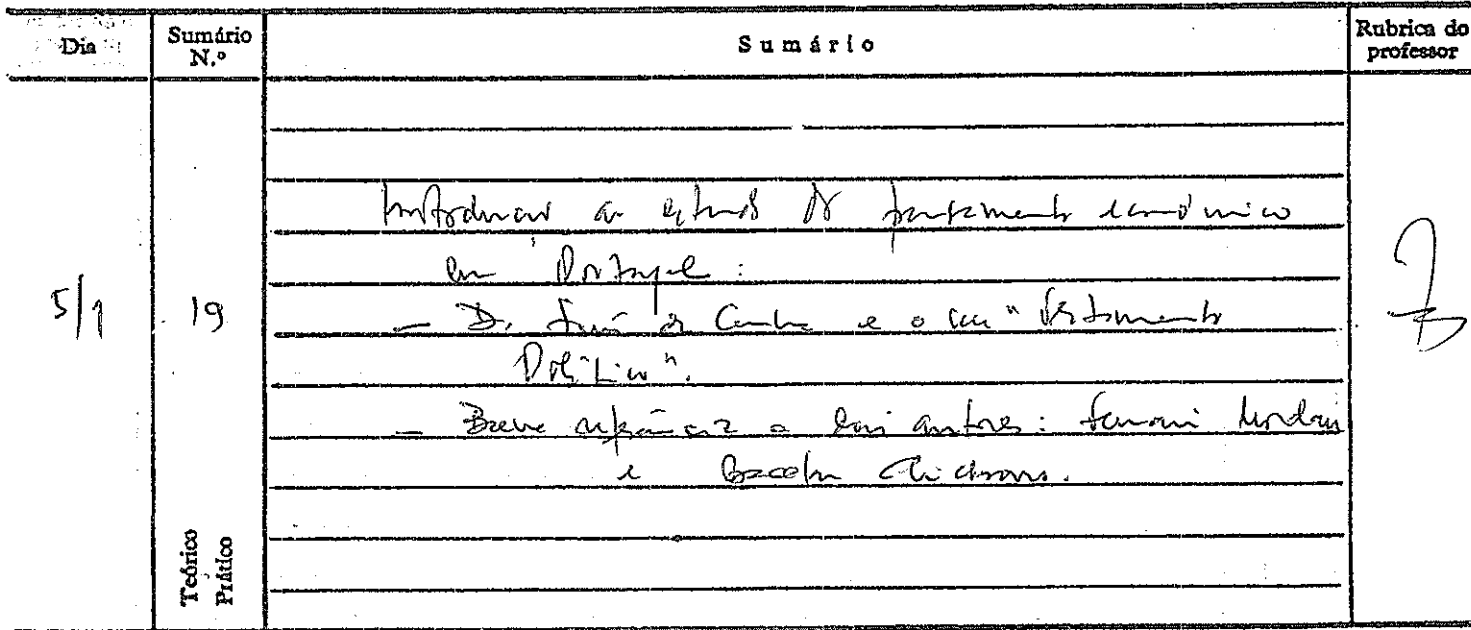 Dia
Sumário N.º
Sumário
Rubrica do professor
5/1
19
Teórico
Prático
Introdução ao estudo do pensamento económico
em Portugal:
— D. Luís da Cunha e o seu "Testamento
Político".
— Breve referência a dois autores:
e